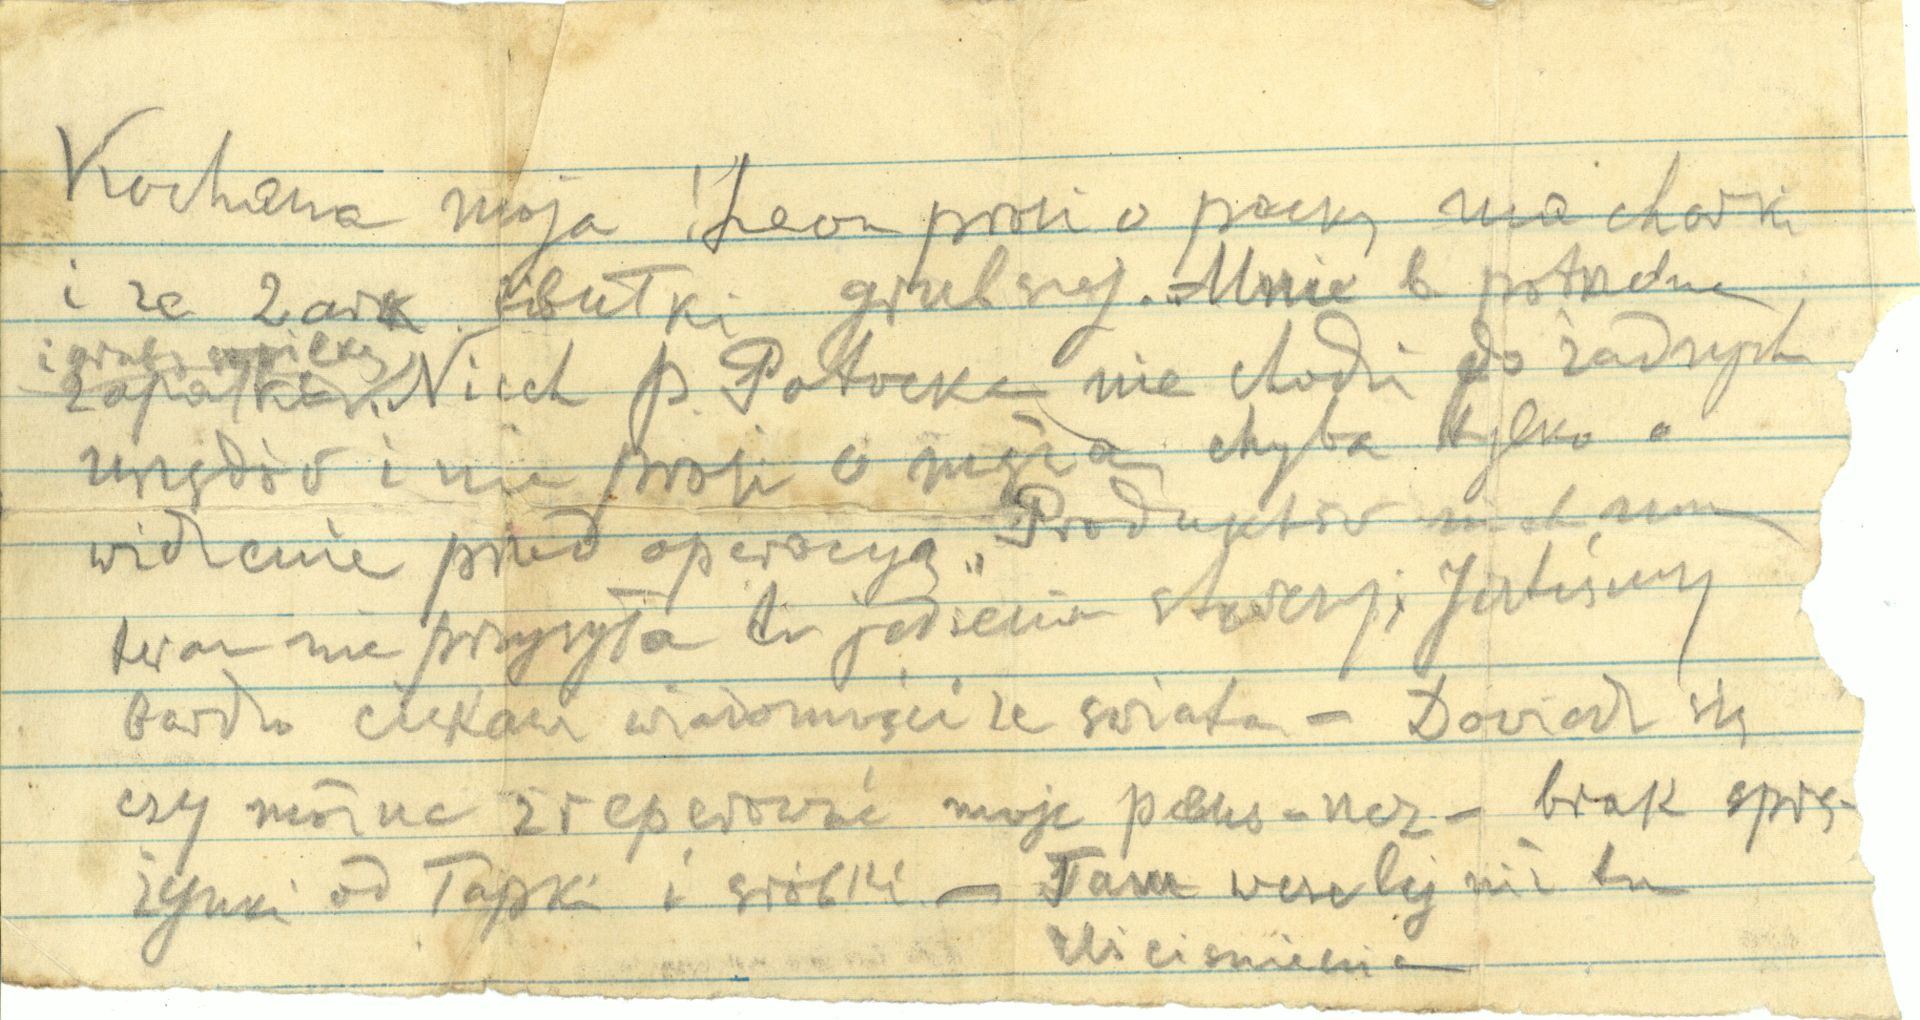 Kochana moja! Leon prosi o paczkę machorki
i ze 2 ark bibułki grubszej. Mnie b potrzebne
i grubą szpilkę
zapałki. Niech p. Potocka nie chodzi do żadnych
urzędów i nie prosi o męża, chyba tylko o
widzenie przed operacyą. Produktów niech nam
teraz nie przysyła tu jedzenia starczy, Jesteśmy
bardzo ciekawi wiadomości ze świata – Dowiedz się
czy można zreperować moje pens-nez – brak sprę-
żynki od łapki i śróbki – Tam weselej niż tu
Uściśnienia